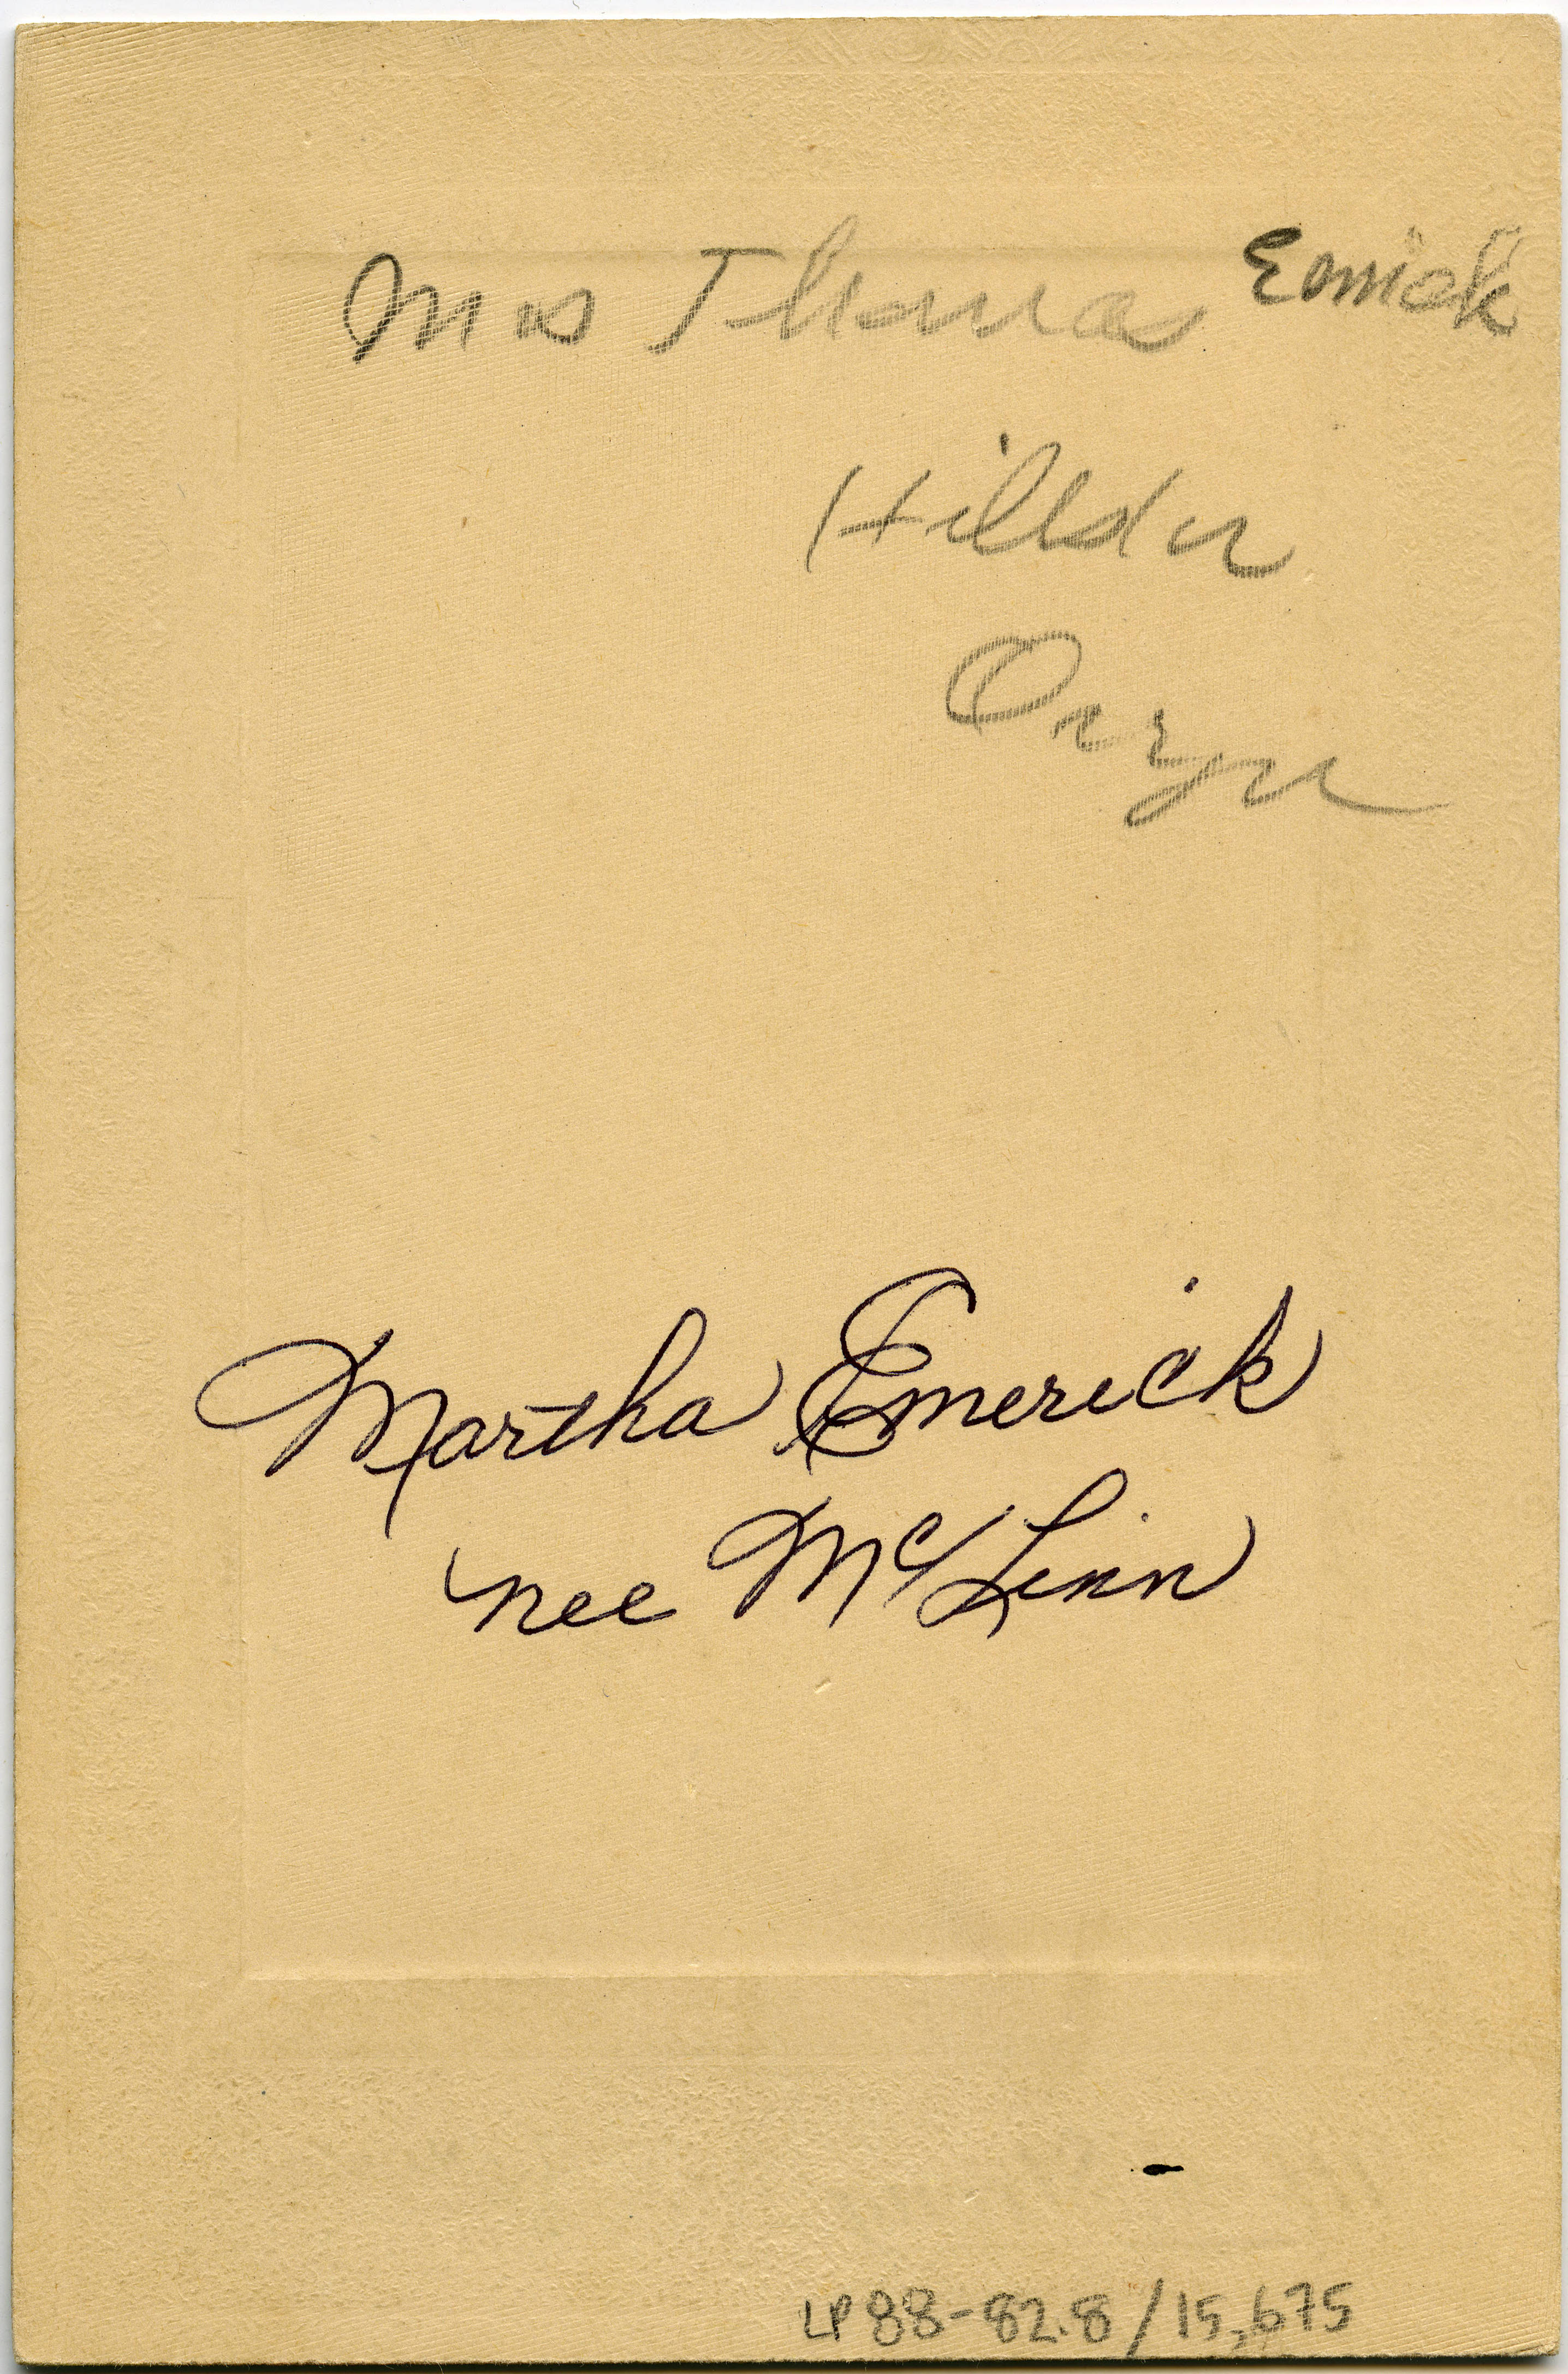 Mrs Thomas Emrick
Hillsdr
Oregn
Martha Emerick
nee McLinn
LP88-82.8/15,675